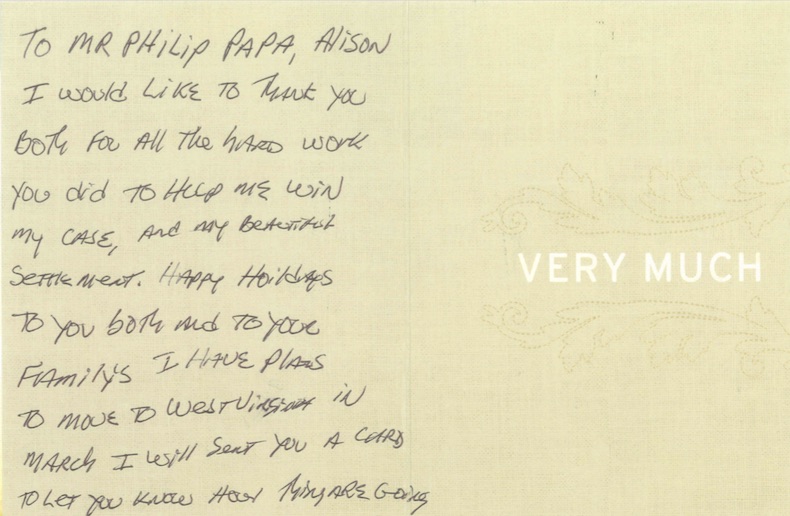 TO MR PHiLiP PAPA, AlisoN
I would LiKE TO THANK YOU
BOTH FOR All THE HARD WORK
YOU did TO HElp ME WiN
MY CASE, AND MY BEAUTIFUl
SETTlEMENT. HAPPY HOildAYS
TO YOU BOTH ANd TO YOUR
FAMilYS I HAVE PlANS
TO MOVE TO WEST ViRGiNiA iN
MARCH I Will SENT YOU A CARD
TO LET YOU KNOW HOW THiNg ARE GOiNg
VERY MUCH